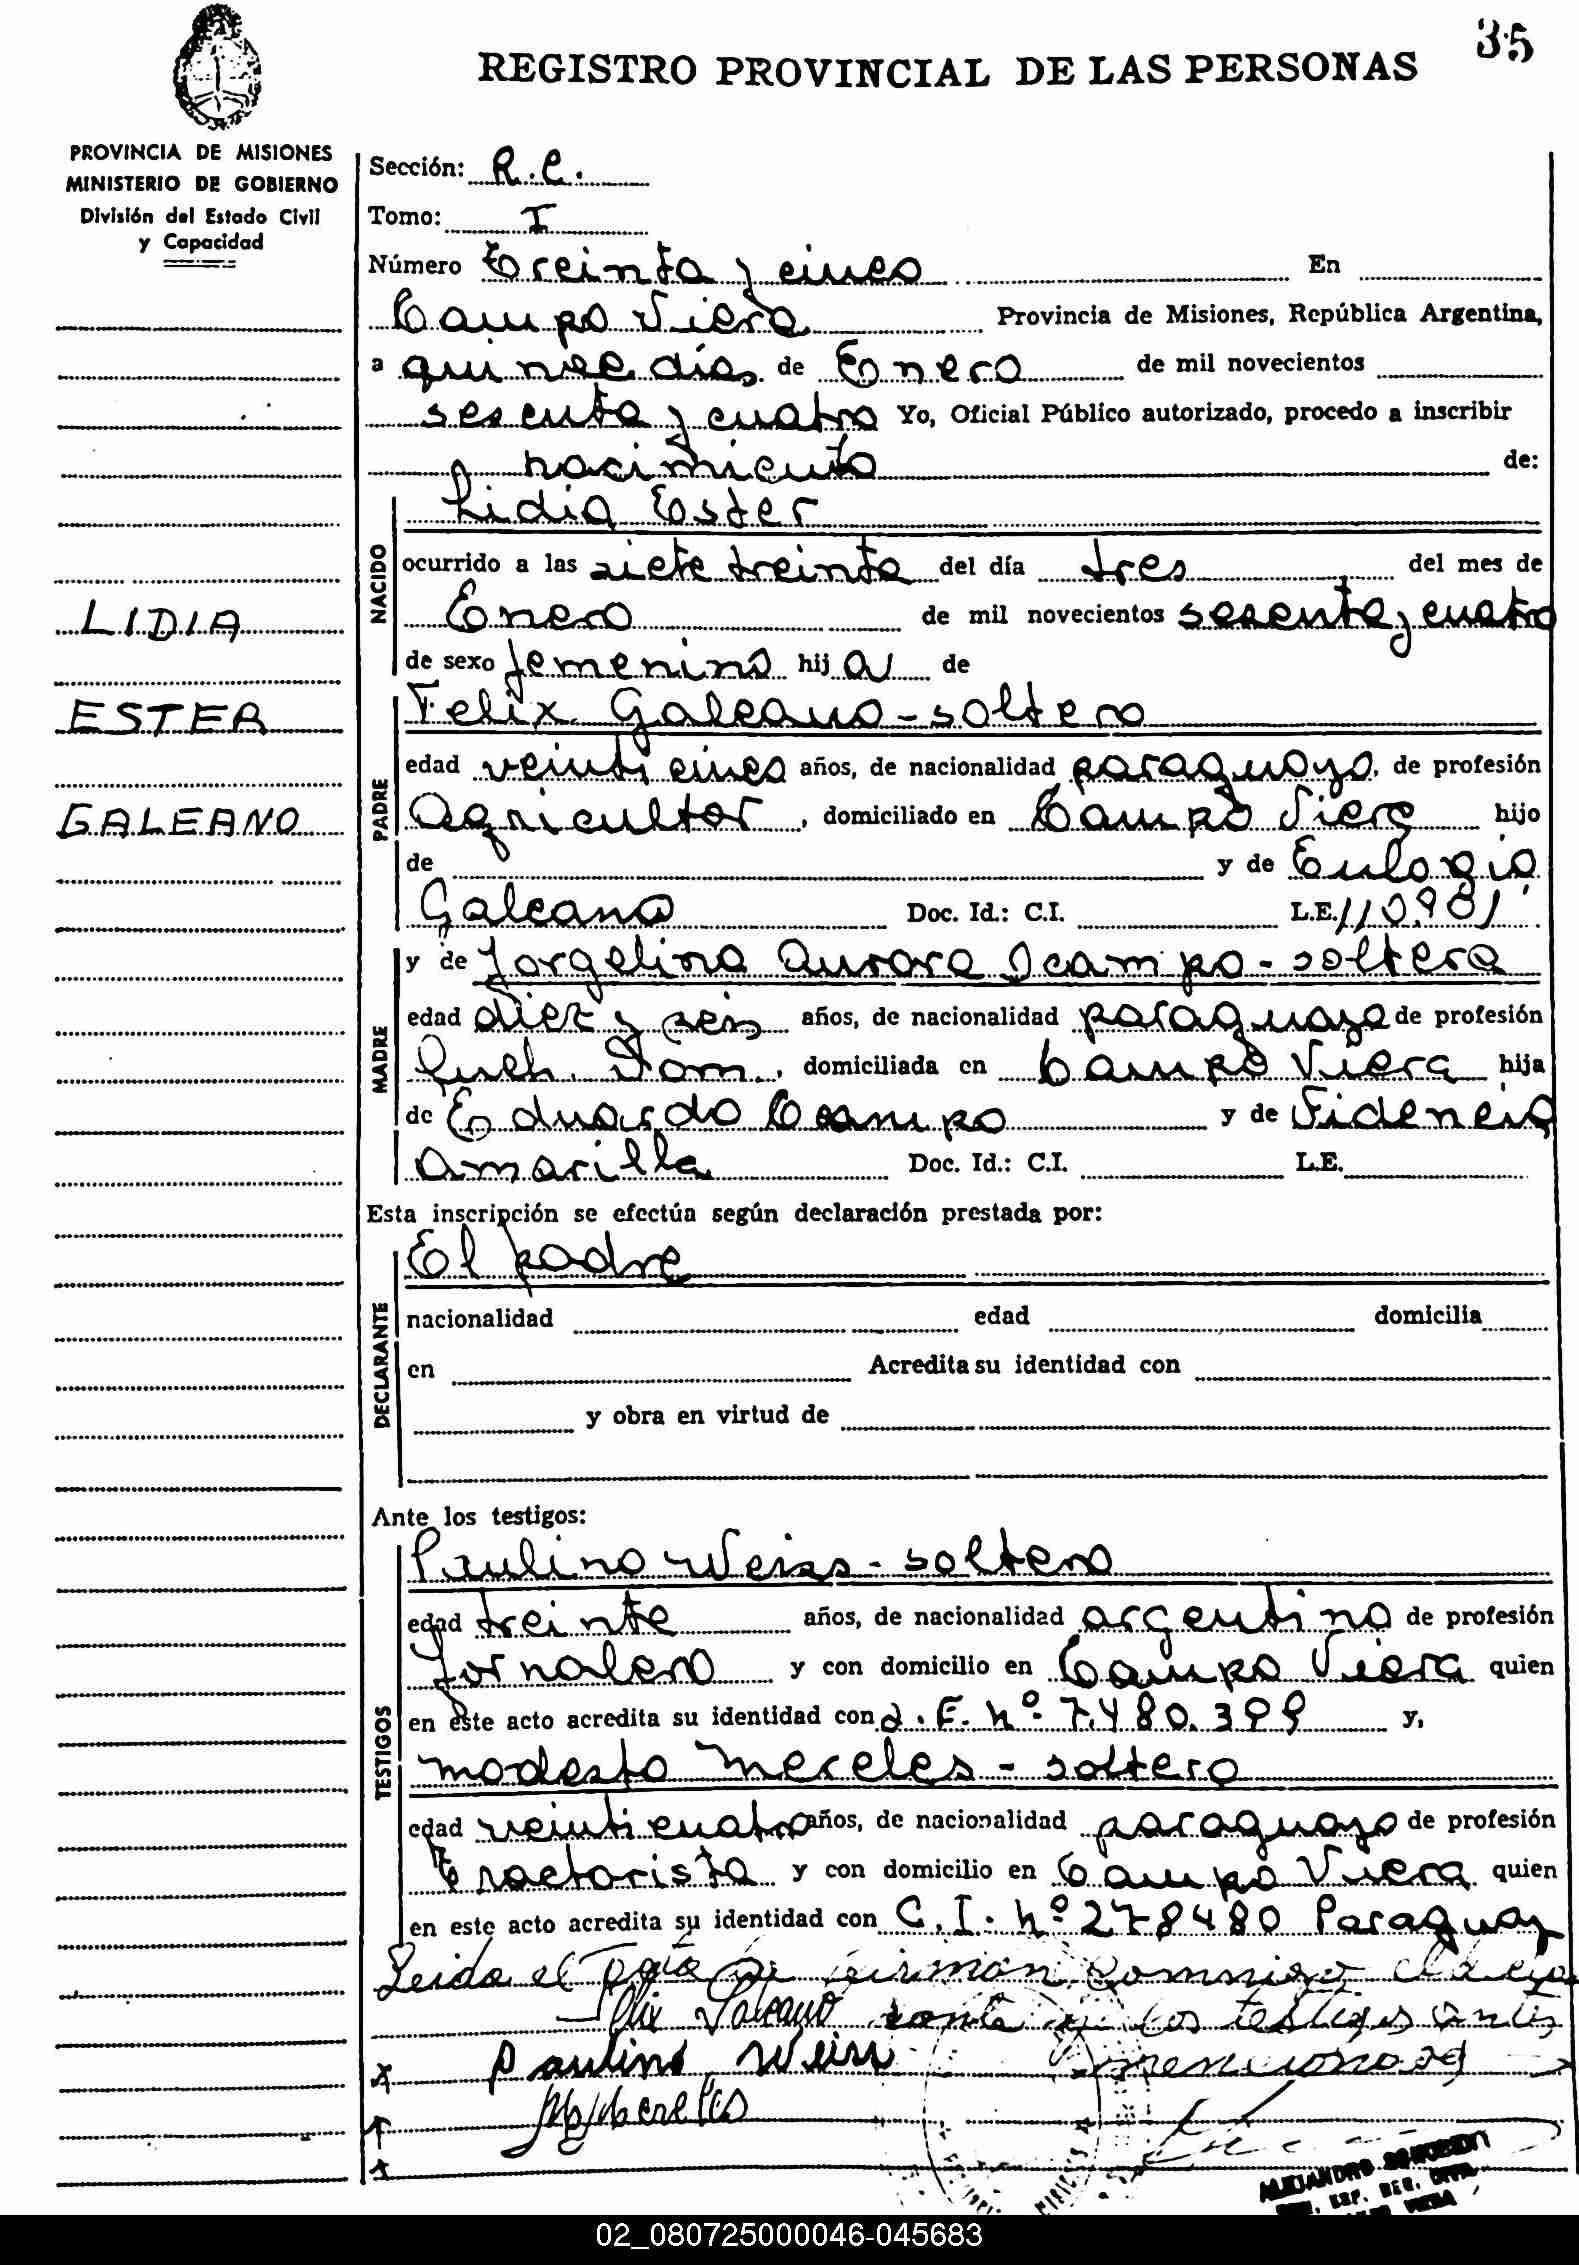 35
REGISTRO PROVINCIAL DE LAS PERSONAS
PROVINCIA DE MISIONES
MINISTERIO DE GOBIERNO
División del Estado Civil
y Capacidad
Sección: R.C.
Tomo: I
Número Treinta y cinco En
Campo Viera Provincia de Misiones, República Argentina,
a quince días de Enero de mil novecientos
sesenta y cuatro Yo, Oficial Público autorizado, procedo a inscribir
nacimiento de:
NACIDO
Lidia Ester
ocurrido a las siete treinta del día tres del mes de
Enero de mil novecientos sesenta y cuatro
de sexo femenino hija de
LIDIA
ESTER
GALEANO
PADRE
Felix Galeano - soltero
edad veinticinco años, de nacionalidad paraguayo, de profesión
Agricultor, domiciliado en Campo Viera hijo
de y de Eulogia
Galeano Doc. Id.: C.I. L.E. 110.901
MADRE
y de Jorgelina Aurora Ocampo - soltera
edad diez y seis años, de nacionalidad paraguaya de profesión
Queh. Dom., domiciliada en Campo Viera hija
de Eduardo Ocampo y de Fidencia
Amarilla Doc. Id.: C.I. L.E.
Esta inscripción se efectúa según declaración prestada por:
DECLARANTE
El padre
nacionalidad edad domicilia
en Acredita su identidad con
y obra en virtud de
Ante los testigos:
TESTIGOS
Paulino Weiss - soltero
edad treinta años, de nacionalidad argentino de profesión
Jornalero y con domicilio en Campo Viera quien
en este acto acredita su identidad con L.E. nº 7.480.399 y,
Modesto Mereles - soltero
edad veinticuatro años, de nacionalidad paraguayo de profesión
Tractorista y con domicilio en Campo Viera quien
en este acto acredita su identidad con C.I. nº 278480 Paraguay
Leida el Acta la firman conmigo el decla
Felix Galeano rante y los testigos antes
x Paulino Weiss mencionados
M Mereles
ALEJANDRO
02_080725000046-045683